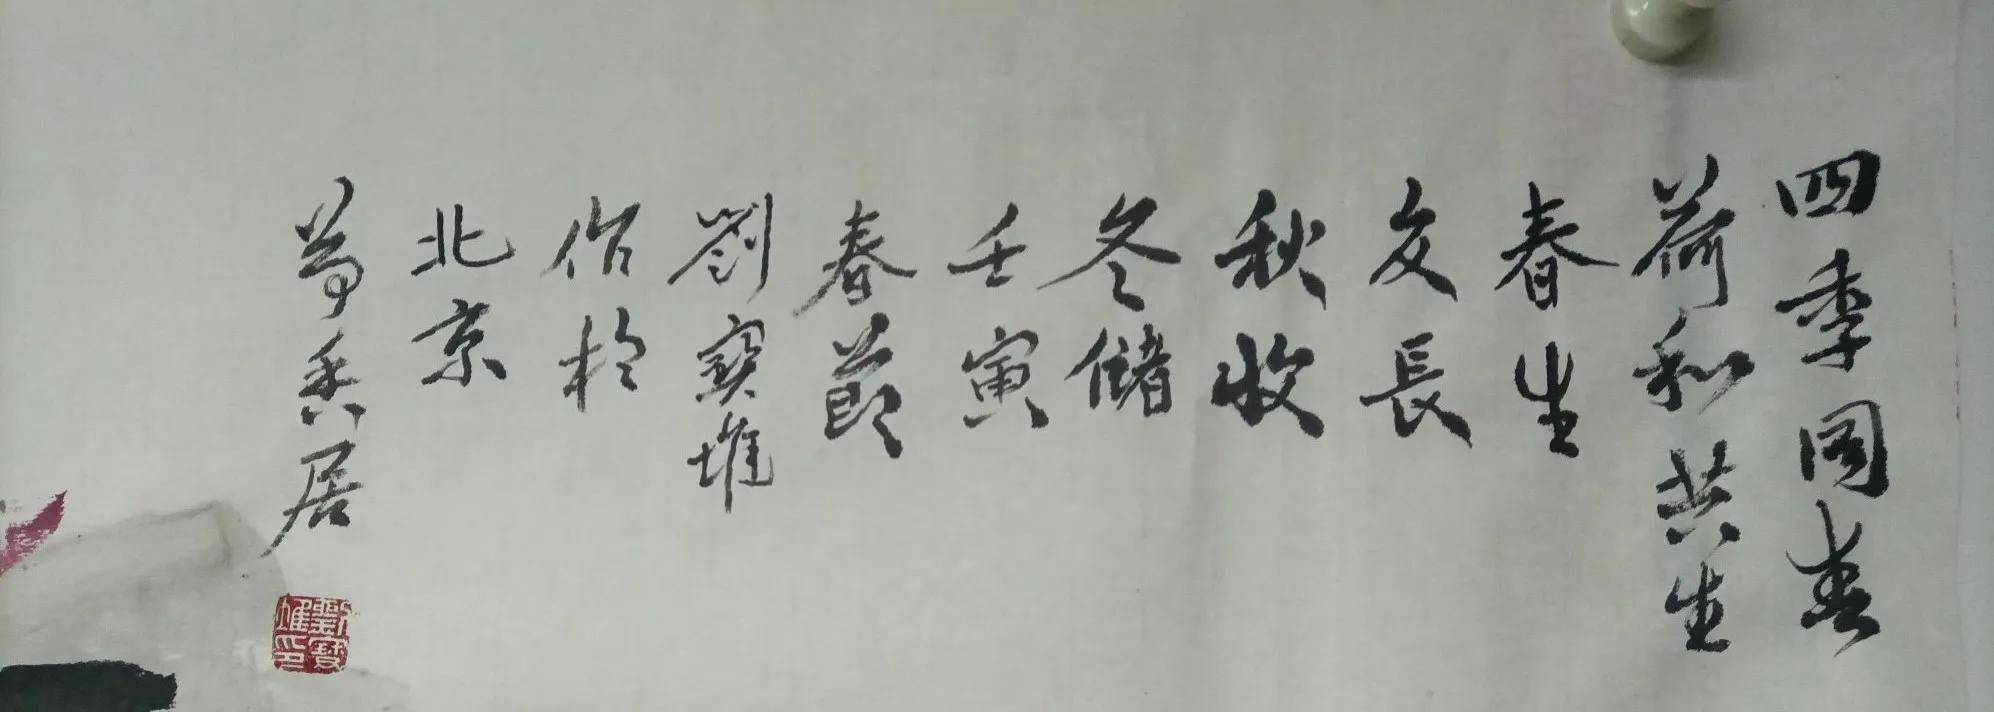 四季同春
荷和共生
春生
夏長
秋收
冬儲
壬寅
春節
劉寶堆
作於
北京
香居
劉寶堆印